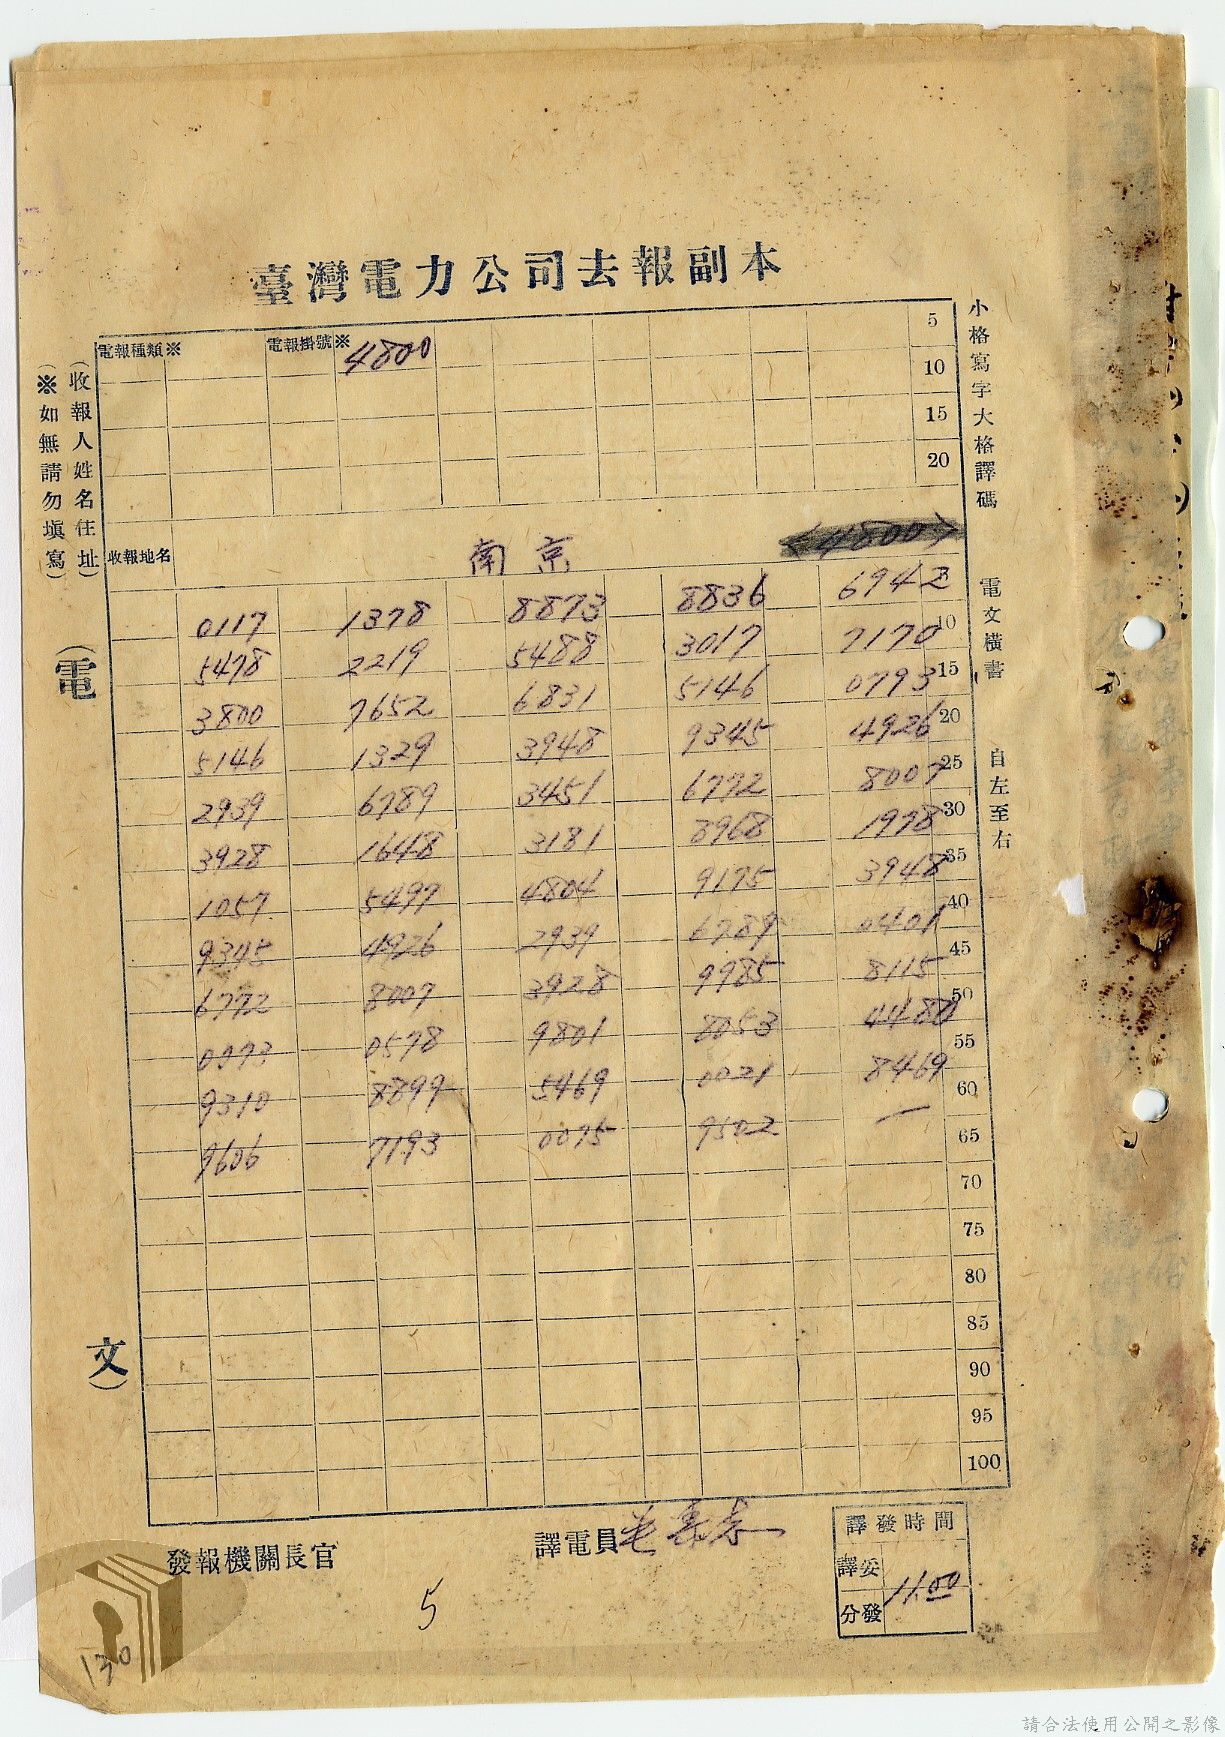 臺灣電力公司去報副本
電報種類※ 電報掛號※ 4800 5
10
15
20
小格寫字大格譯碼 電文橫書 自左至右
(收報人姓名住址)
(※如無請勿塡寫)
收報地名 南京 <4800>
(電文)
0117 1378 8873 8836 6942
5478 2219 5488 3017 7170 10
3800 7652 6831 5146 0793 15
5146 1329 3948 9345 4926 20
2939 6789 3451 6772 8007 25
3928 1648 3181 8968 1978 30
1057 5497 4804 9175 3948 35
9345 4926 2939 6789 0401 40
6772 8007 3928 9985 8115 45
0973 0578 9801 8053 4480 50
9310 8899 5469 0021 8469 55
9606 7193 0075 9502 — 60
65
70
75
80
85
90
95
100
發報機關長官
譯電員
譯發時間
譯妥
分發
11.00
5
130
請合法使用公開之影像